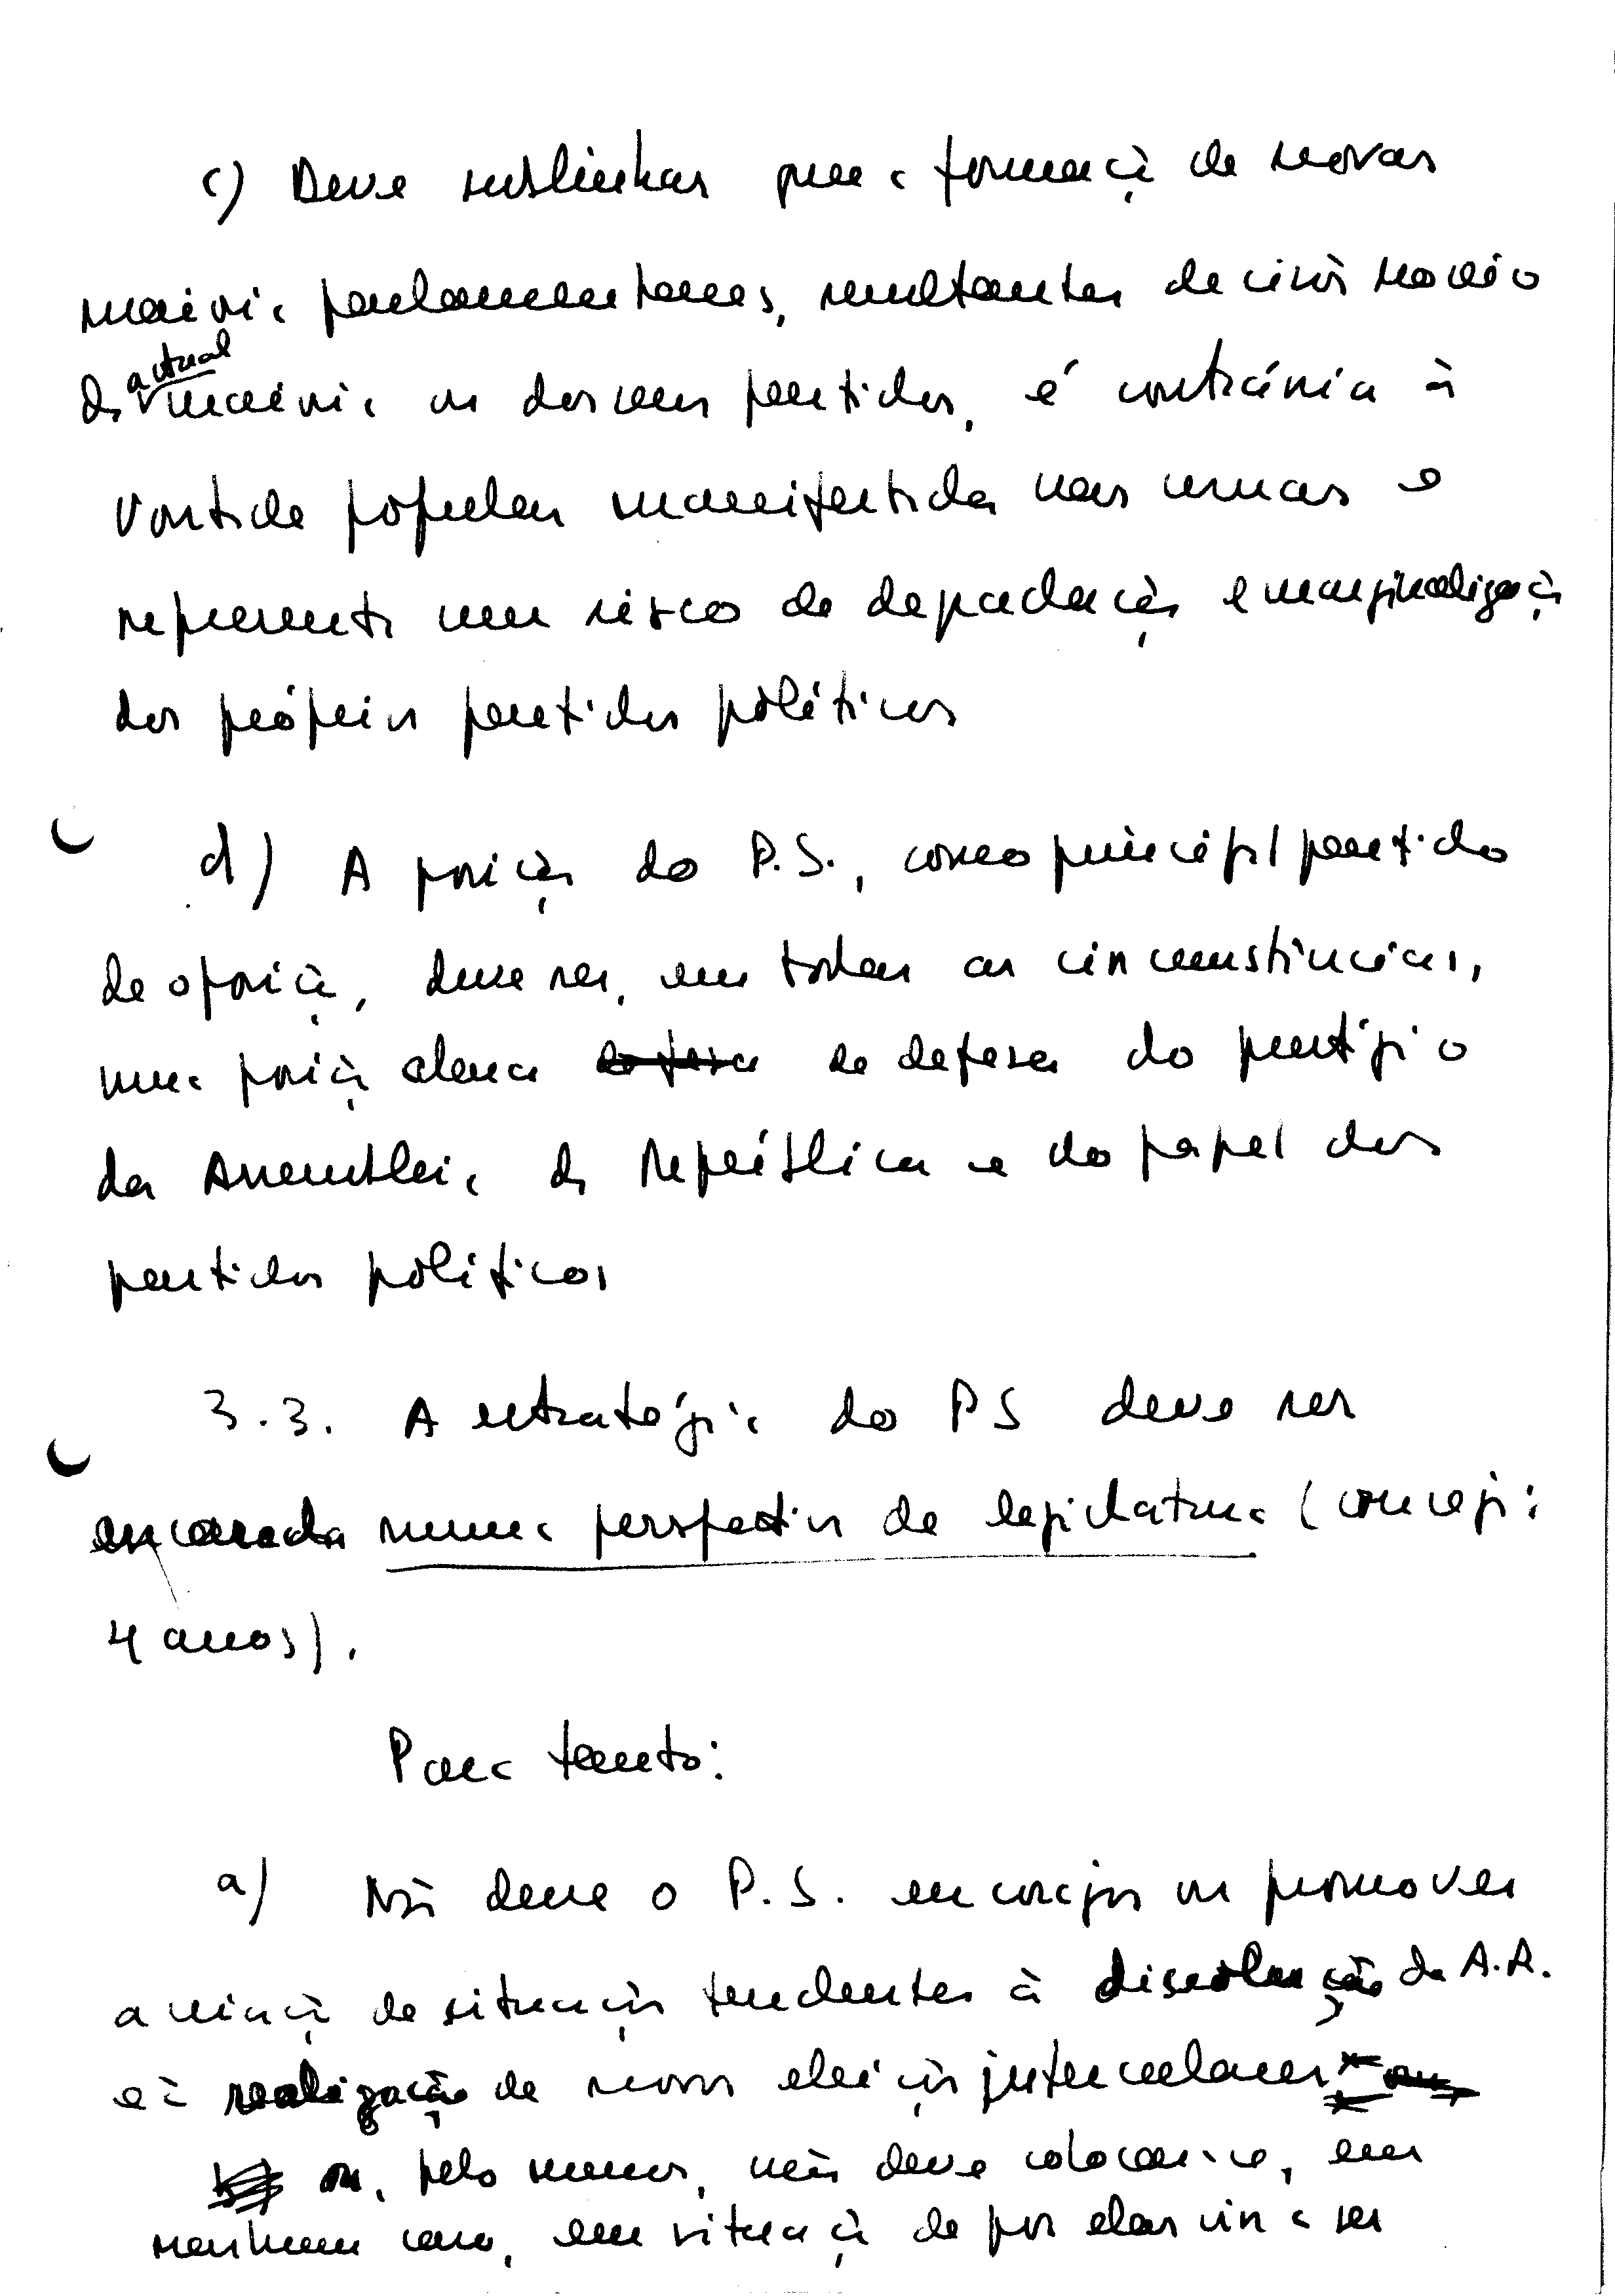 c) Deve sublinhar que a formação de novas
maioria parlamentares, resultantes de cisões no seio
da actual maioria ou dos seus partidos, é contrária à
vontade popular manifestada nas urnas e
representa um risco de degradação e marginalização
dos próprios partidos políticos
d) A posição do P.S., como principal partido
de oposição, deve ser, em todas as circunstâncias,
uma posição clara de defesa do prestígio
da Assembleia da República e do papel dos
partidos políticos
3.3. A estratégia do PS deve ser
encarada numa perspectiva de legislatura (
4 anos).
Para tanto:
a) Não deve o P.S. encorajar ou promover
a criação de situações tendentes à dissolução da A.R.
e à realização de novas eleições intercalares
ou, pelo menos, não deve colocar-se, em
nenhum caso, em situação de por elas vir a ser